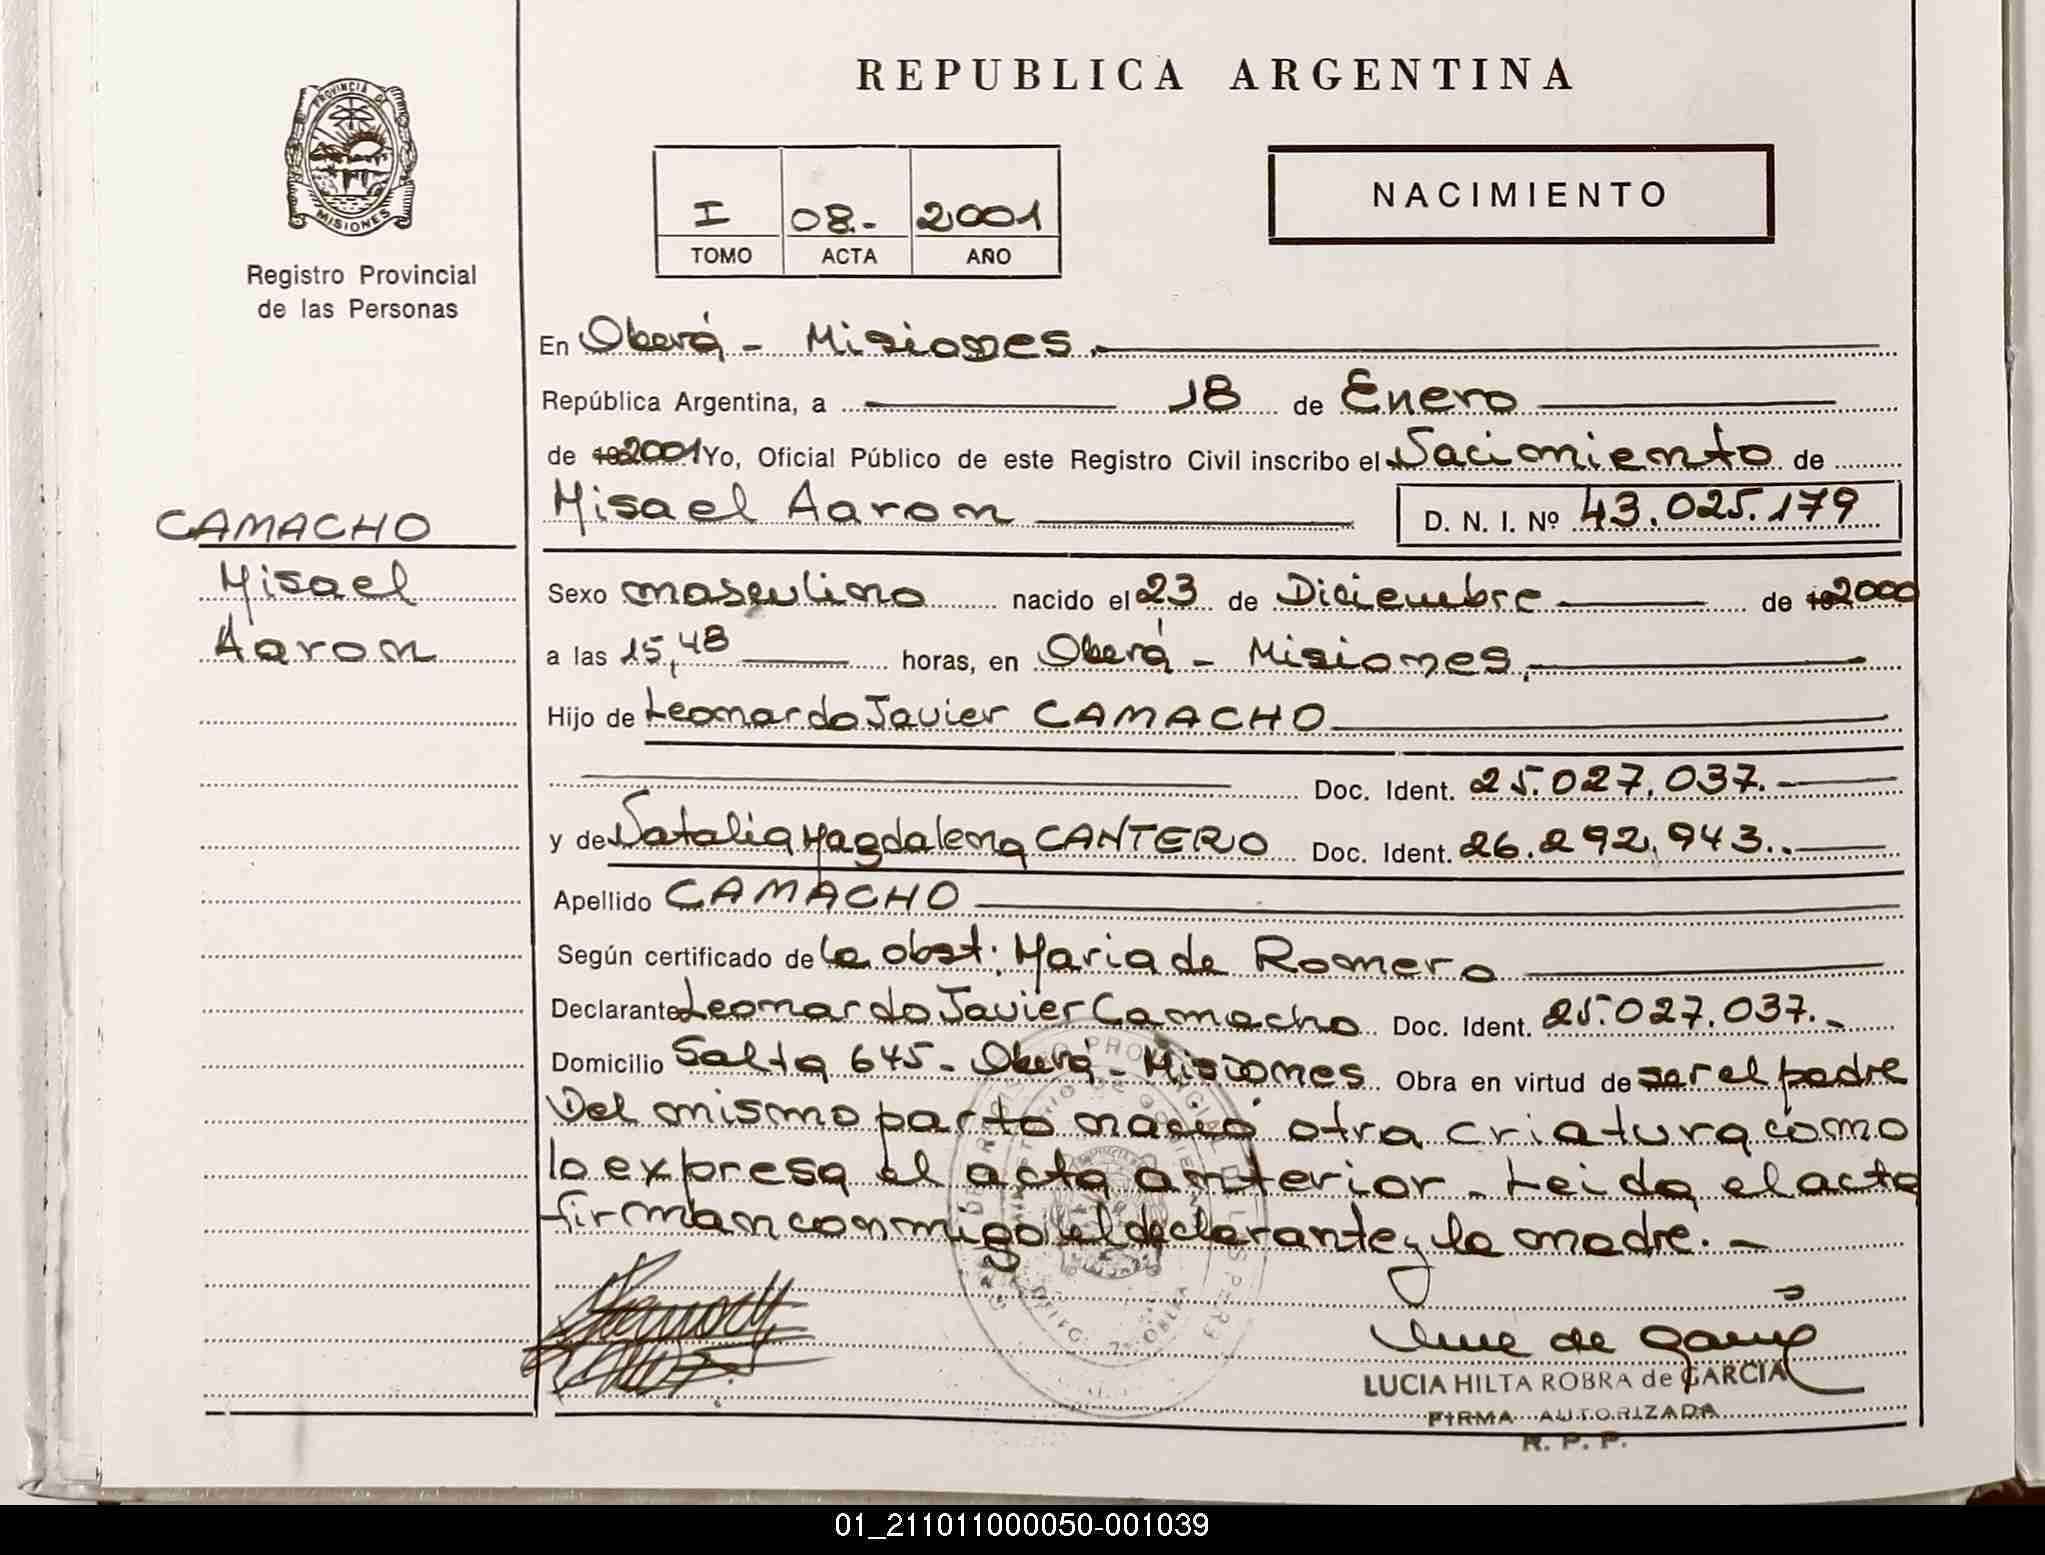 REPUBLICA ARGENTINA
PROVINCIA DE
MISIONES
Registro Provincial
de las Personas
I 08.- 2001
TOMO ACTA AÑO
NACIMIENTO
En Oberá - Misiones.
República Argentina, a 18 de Enero
de 2001 Yo, Oficial Público de este Registro Civil inscribo el Nacimiento de
Misael Aaron D. N. I. Nº 43.025.179
CAMACHO
Misael
Aaron
Sexo masculino nacido el 23 de Diciembre de 2000
a las 15,48 horas, en Oberá - Misiones.
Hijo de Leonardo Javier CAMACHO
Doc. Ident. 25.027.037.
y de Natalia Magdalena CANTERO Doc. Ident. 26.292.943.
Apellido CAMACHO
Según certificado de la obst: Maria de Romero
Declarante Leonardo Javier Camacho Doc. Ident. 25.027.037.-
Domicilio Salta 645 - Oberá - Misiones Obra en virtud de ser el padre
Del mismo parto nació otra criatura como
lo expresa el acta anterior. Leida el acta
firman conmigo el declarante y la madre. -
de
LUCIA HILTA ROBRA de GARCIA
FIRMA AUTORIZADA
R. P. P.
01_211011000050-001039